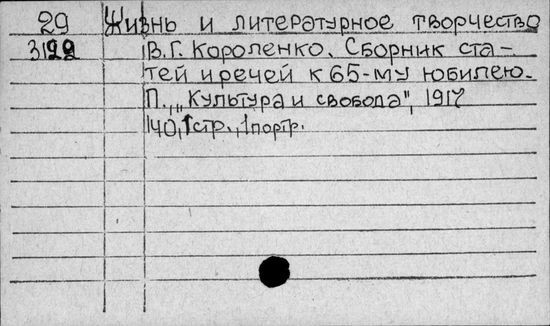 29 Жизнь и литературное творчество
3122 В.Г. Короленко. Сборник ста-
тей и речей к 65-му юбилею.
П., „Культура и свобода", 1917
140, 1 стр., 1 портр.